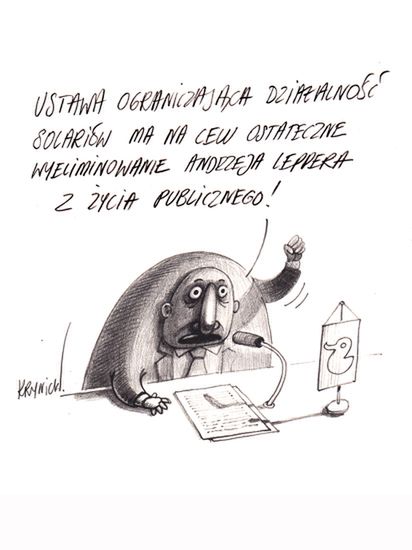 USTAWA OGRANICZAJĄCA DZIAŁALNOŚĆ
SOLARIÓW MA NA CELU OSTATECZNE
WYELIMINOWANIE ANDRZEJA LEPPERA
Z ŻYCIA PUBLICZNEGO!